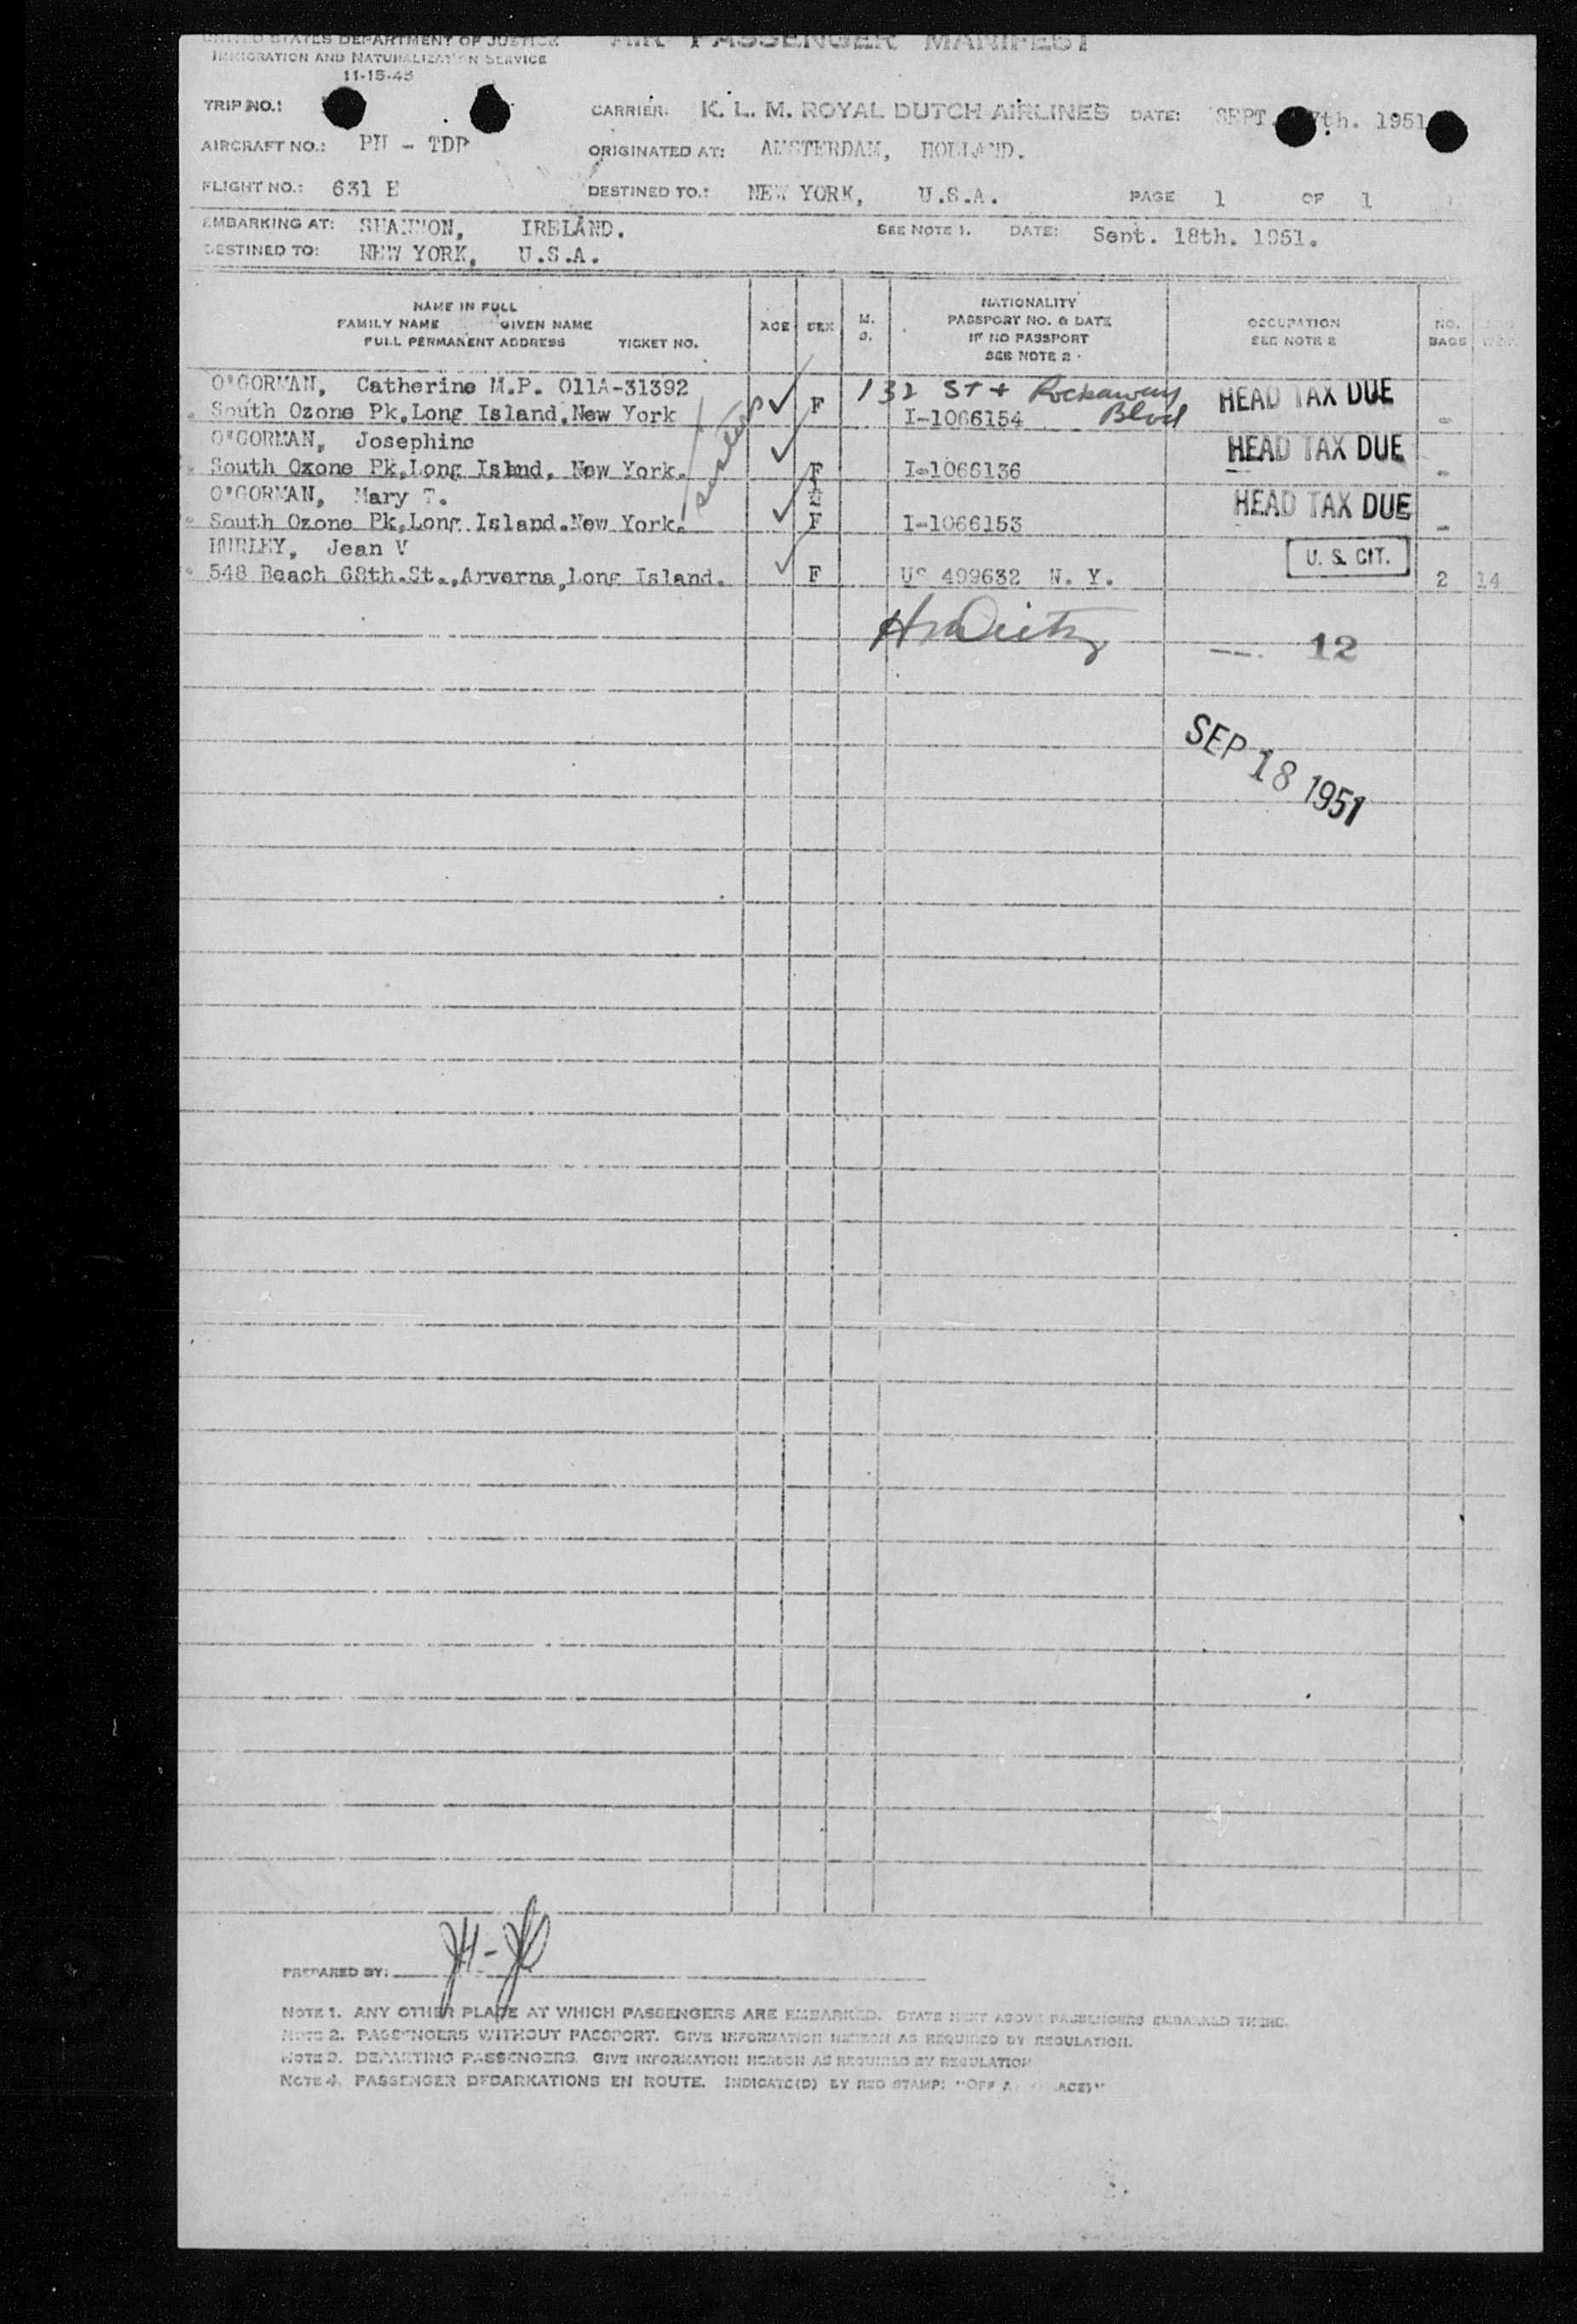 UNITED STATES DEPARTMENT OF JUSTICE AIR PASSENGER MANIFEST
IMMIGRATION AND NATURALIZATION SERVICE
11-15-45
TRIP NO.: CARRIER: K. L. M. ROYAL DUTCH AIRLINES DATE: SEPT. 7th. 1951
AIRCRAFT NO.: PH - TDP ORIGINATED AT: AMSTERDAM, HOLLAND.
FLIGHT NO.: 631 E DESTINED TO.: NEW YORK, U.S.A. PAGE 1 OF 1
EMBARKING AT: SHANNON, IRELAND. SEE NOTE 1. DATE: Sept. 18th. 1951.
DESTINED TO: NEW YORK, U.S.A.
NAME IN FULL
FAMILY NAME GIVEN NAME
FULL PERMANENT ADDRESS TICKET NO.
AGE SEX M. S.
NATIONALITY
PASSPORT NO. & DATE
IF NO PASSPORT
SEE NOTE 2
OCCUPATION
SEE NOTE 2
NO.
BAGS
O'GORMAN, Catherine M.P. 011A-31392 132 St + Rockaway HEAD TAX DUE
South Ozone Pk,Long Island,New York F I-1066154 Blvd -
O'GORMAN, Josephine HEAD TAX DUE
South Ozone Pk,Long Island, New York. F I-1066136 -
O'GORMAN, Mary T. HEAD TAX DUE
South Ozone Pk,Long Island.New York. F I-1066153 -
HURLEY, Jean V U. S. CIT.
548 Beach 68th.St.,Arverna,Long Island. F US 499632 N. Y. 2 14
12
SEP 18 1951
PREPARED BY:
NOTE 1. ANY OTHER PLACE AT WHICH PASSENGERS ARE EMBARKED. STATE NEXT ABOVE PASSENGERS EMBARKED THERE.
NOTE 2. PASSENGERS WITHOUT PASSPORT. GIVE INFORMATION HEREON AS REQUIRED BY REGULATION.
NOTE 3. DEPARTING PASSENGERS. GIVE INFORMATION HEREON AS REQUIRED BY REGULATION
NOTE 4. PASSENGER DEBARKATIONS EN ROUTE. INDICATE(D) BY RED STAMP: "OFF A ACE)"